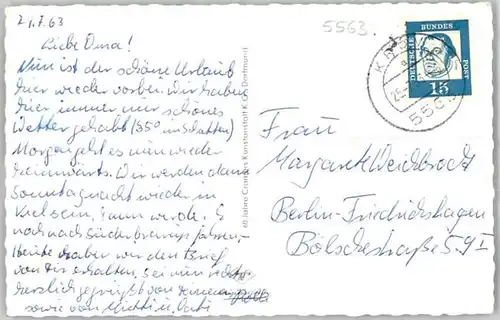 21.7.63
5563
Liebe Oma!
Nun ist der schöne Urlaub
hier wieder vorbei. Wir haben
hier immer nur schönes
Wetter gehabt (35° im Schatten)
Morgen geht es nun wieder
heimwärts. Wir werden dann
Sonntagnacht wieder in
Kiel sein, dann werde
noch nach Süderbrarup fahren.
Heute haben wir den Brief
von Dir erhalten, sei nun
herzlich gegrüßt von Deinem
sowie von Mutti u. Vati
60 Jahre Cramers Kunstanstalt K.G., Dortmund
DEUTSCHE
BUNDES
POST
15
Frau
Margarete Weichbrodt
Berlin-Friedrichshagen
Bölschestraße 59 I